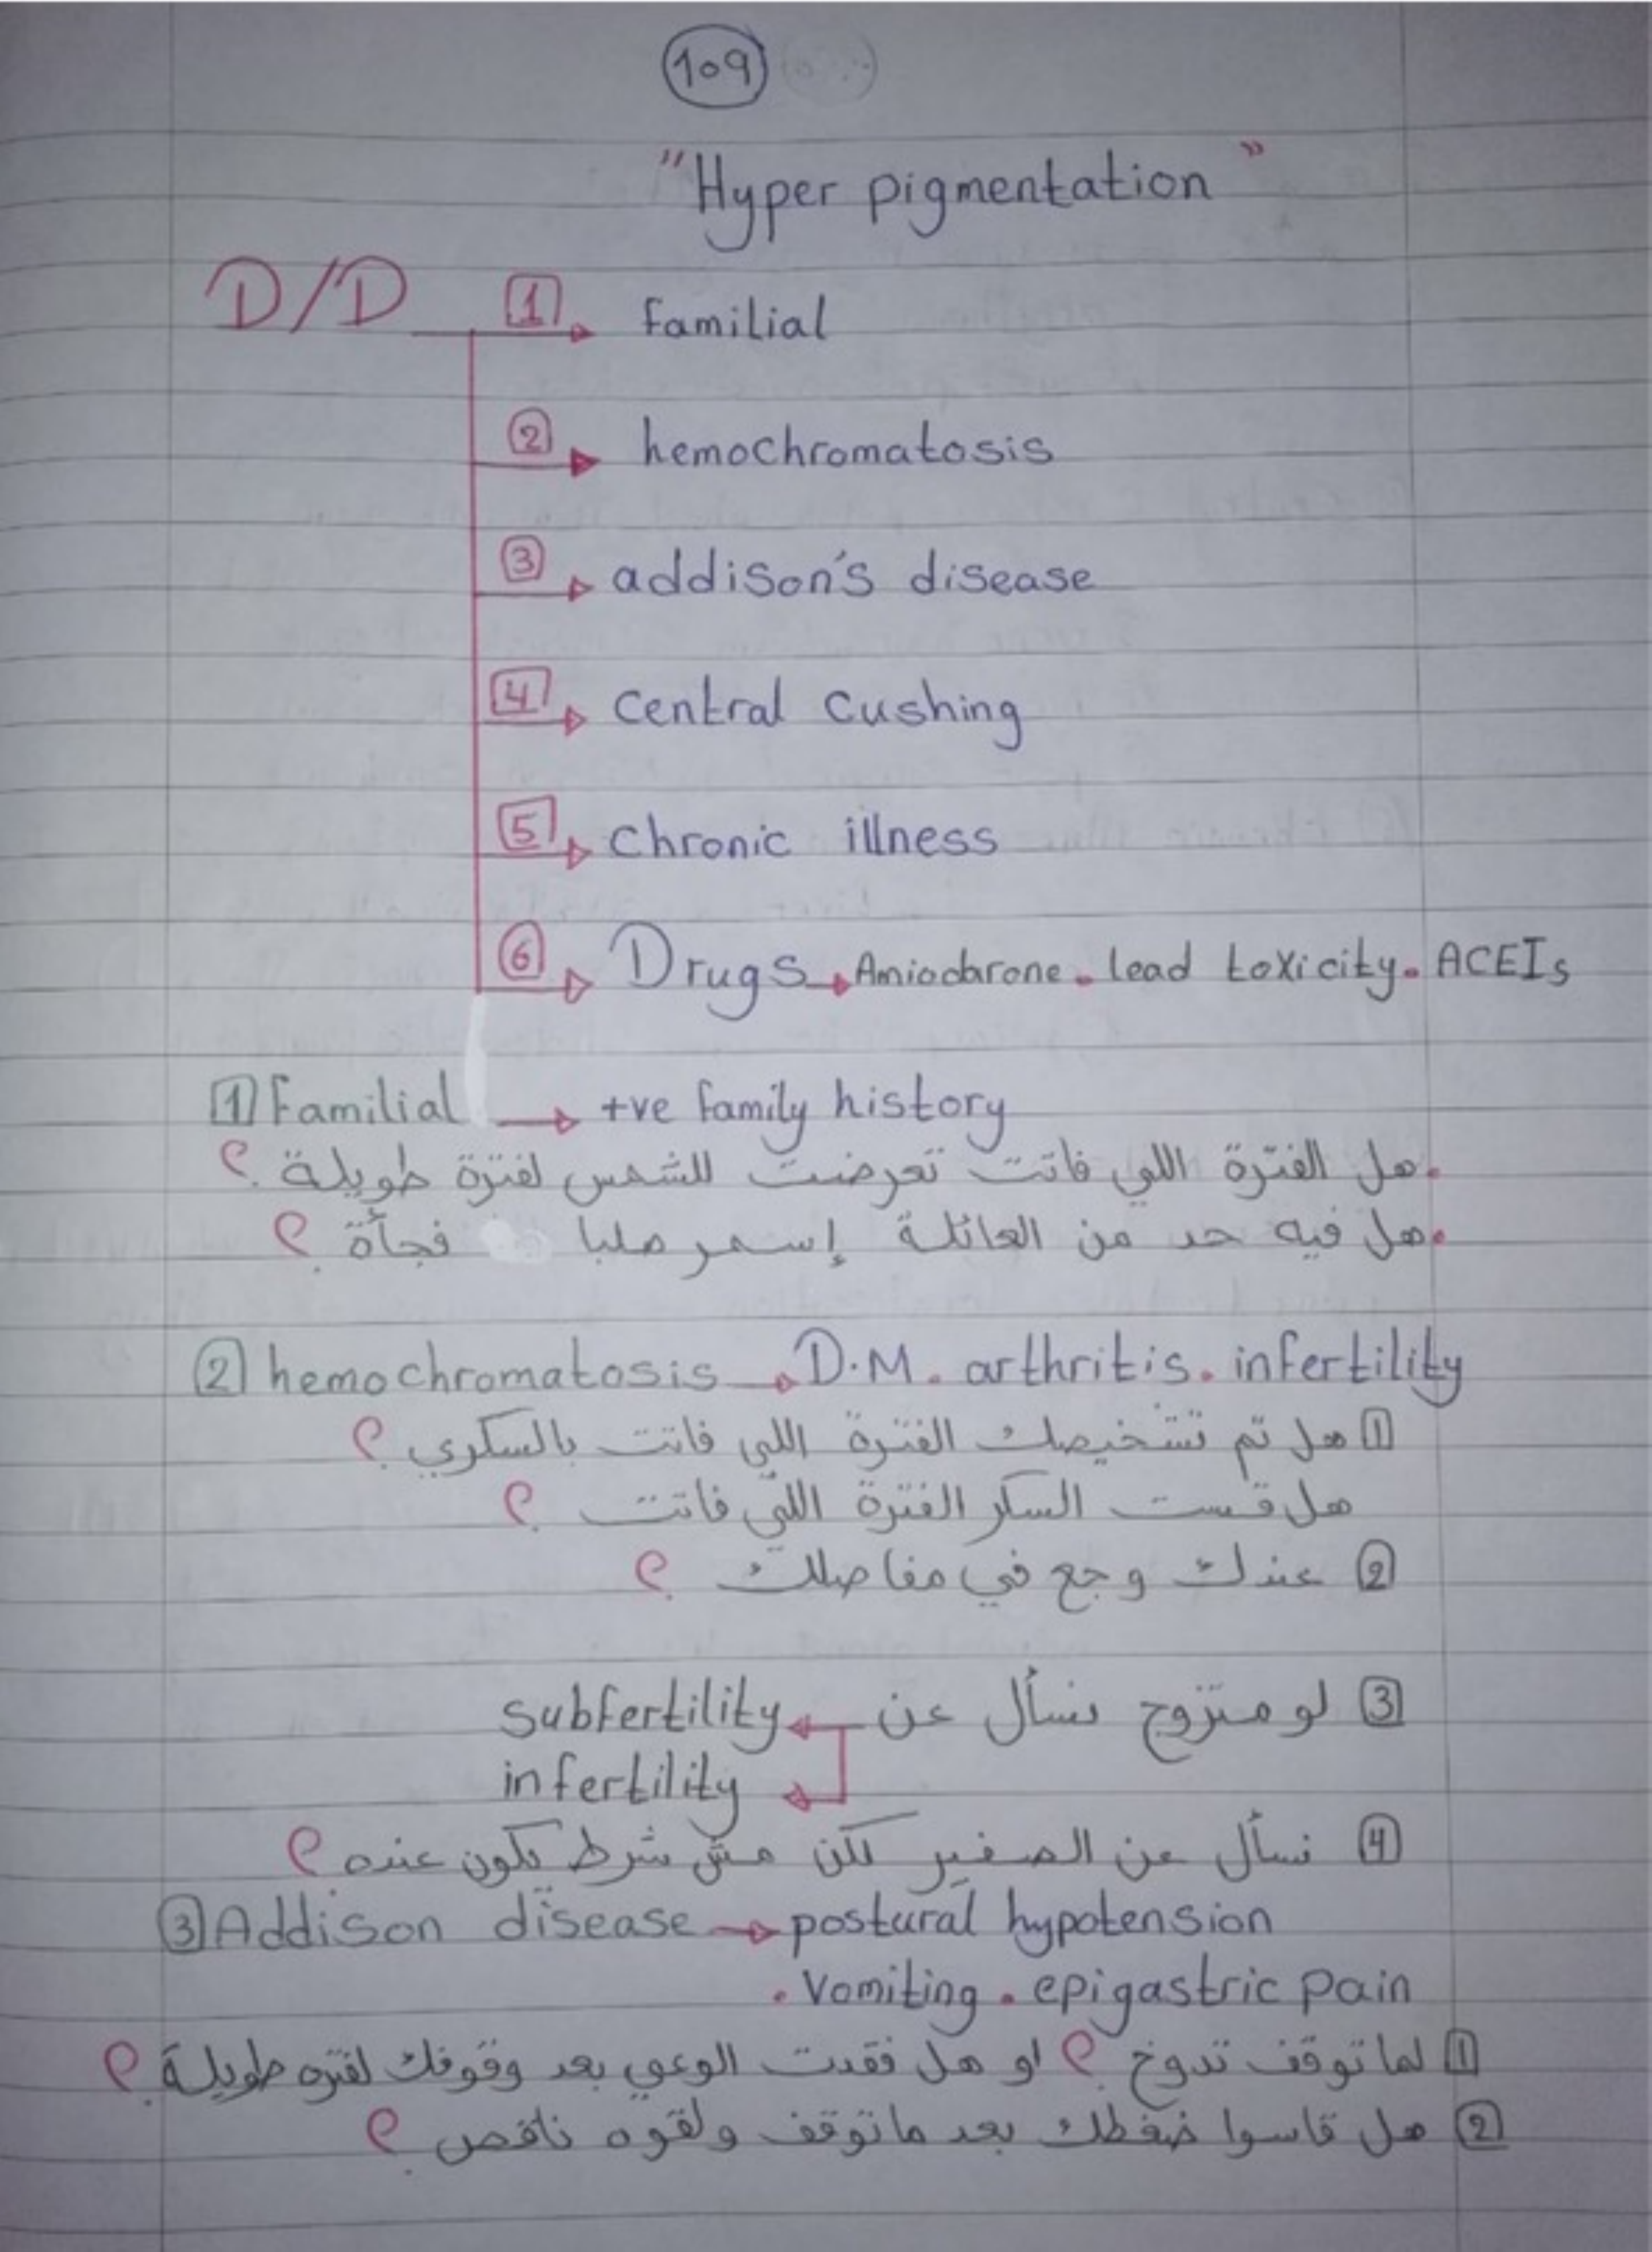 109
"Hyper pigmentation"
D/D 1 familial
2 hemochromatosis
3 addison's disease
4 central cushing
5 chronic illness
6 Drugs Amiodarone. lead toxicity. ACEIs
1 Familial +ve family history
.هل الفترة اللي فاتت تعرضت للشمس لفترة طويلة ؟
.هل فيه حد من العائلة إسمر فجأة ؟
2 hemochromatosis D.M. arthritis. infertility
1 هل تم تشخيصك الفترة اللي فاتت بالسكري ؟
هل قست السكر الفترة اللي فاتت ؟
2 عندك وجع في مفاصلك ؟
3 لو متزوج نسأل عن subfertility
infertility
4 نسأل عن الصفير لكن مش شرط يكون عنده ؟
3 Addison disease postural hypotension
. Vomiting . epigastric pain
1 لما توقف تدوخ ؟ او هل فقدت الوعي بعد وقوفك لفتره طويلة ؟
2 هل قاسوا ضغطك بعد ماتوقف ولقوه ناقص ؟